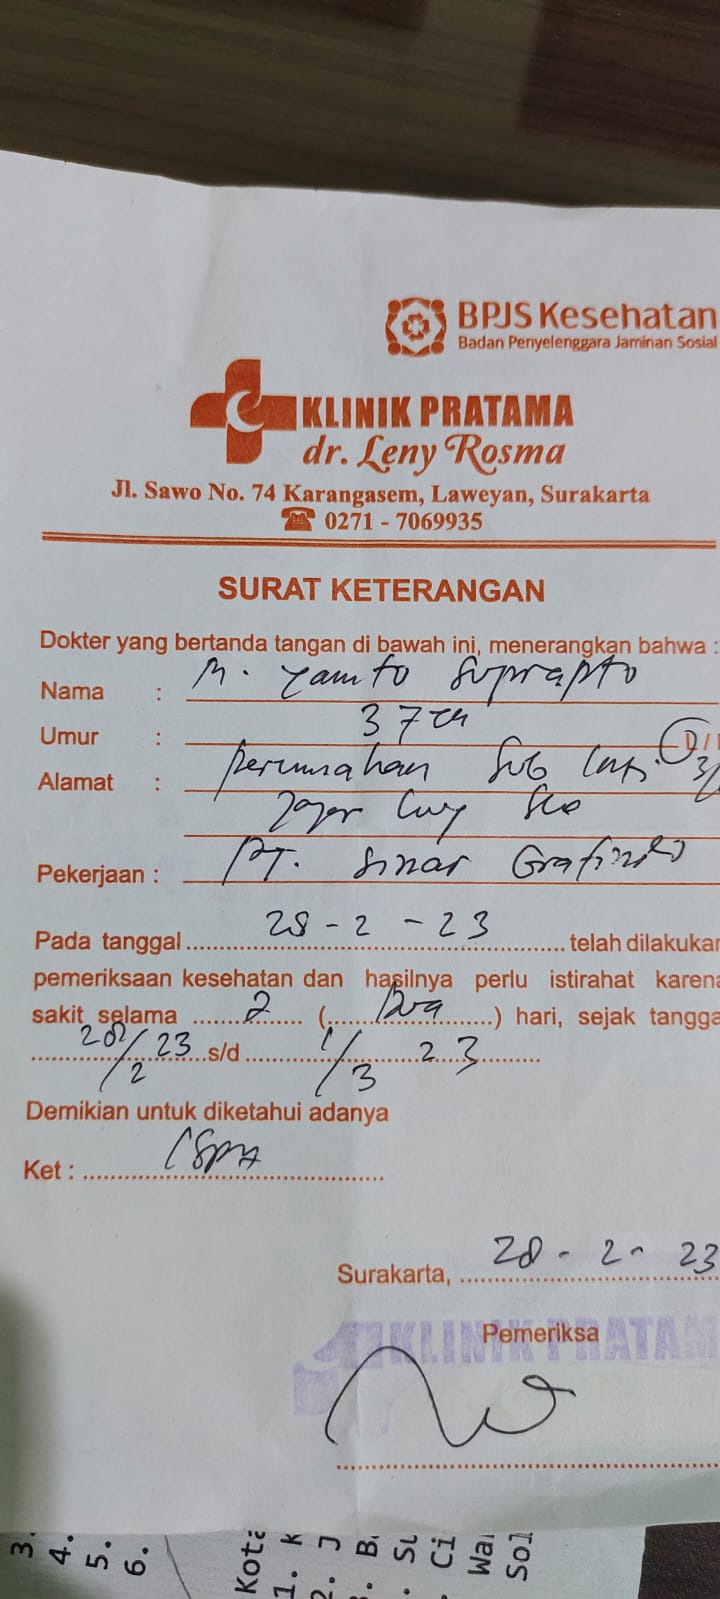 BPJS Kesehatan
Badan Penyelenggara Jaminan Sosial
KLINIK PRATAMA
dr. Leny Rosma
Jl. Sawo No. 74 Karangasem, Laweyan, Surakarta
☎ 0271 - 7069935
SURAT KETERANGAN
Dokter yang bertanda tangan di bawah ini, menerangkan bahwa :
Nama : M. Yamto Suprapto
Umur : 37 th
Alamat : perumahan
Pekerjaan : PT. Sinar Grafindo
Pada tanggal 28 - 2 - 23 telah dilakukan
pemeriksaan kesehatan dan hasilnya perlu istirahat karena
sakit selama 2 (Dua) hari, sejak tangga
28/2 23 s/d 1/3 23
Demikian untuk diketahui adanya
Ket : ISPA
Surakarta, 28 - 2 - 23
Pemeriksa
KLINIK PRATAM
3.
4.
5.
6.
Kota
1. K
2. J
. B
. Su
. Ci
Wa
Sol